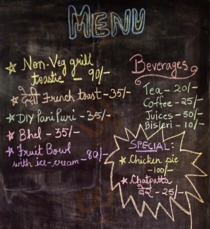 MENU
Non-Veg grill
toastie - 90/-
देशी French toast - 35/-
DIY Pani Puri - 35/-
Bhel - 35/-
Fruit Bowl
with ice-cream - 80/-
Beverages
Tea - 20/-
Coffee - 25/-
Juices - 50/-
Bisleri - 10/-
SPECIAL:
Chicken pie
- 100/-
Chatpatta
- 25/-